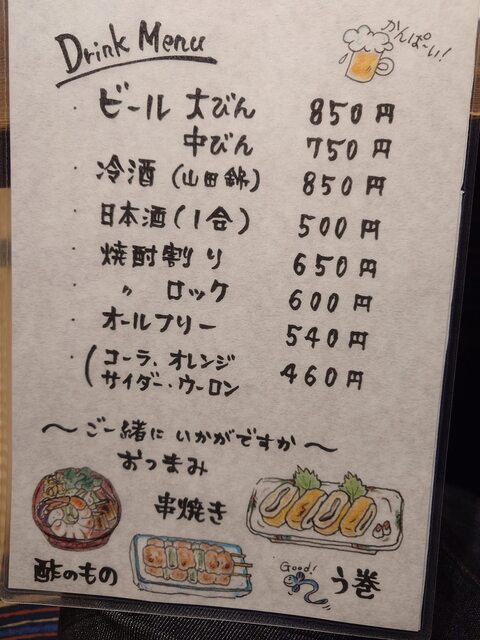 Drink Menu
かんぱ〜い!
・ビール 大びん 850円
中びん 750円
・冷酒(山田錦) 850円
・日本酒(1合) 500円
・焼酎割り 650円
〃 ロック 600円
・オールフリー 540円
・(コーラ、オレンジ
サイダー・ウーロン 460円
〜ご一緒にいかがですか〜
おつまみ
串焼き
酢のもの
Good!
う巻